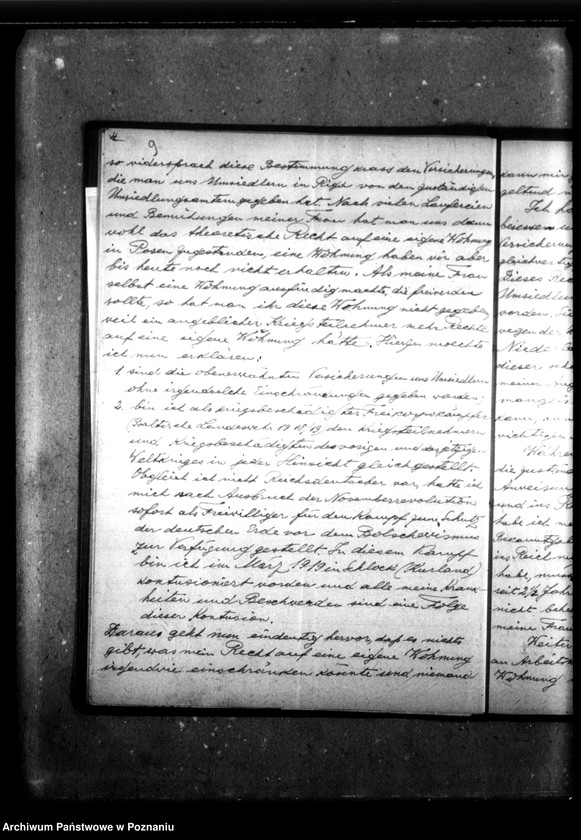 9
so widersprach diese Bestimmung krass den Versicherungen,
die man uns Umsiedlern in Riga von den zuständigen
Umsiedlungsämtern gegeben hat. Nach vielen Laufereien
und Bemühungen meiner Frau hat man uns dann
wohl das theoretische Recht auf eine eigene Wohnung
in Posen zugestanden, eine Wohnung haben wir aber
bis heute noch nicht erhalten. Als meine Frau
selbst eine Wohnung ausfindig machte, die frei werden
sollte, so hat man ihr diese Wohnung nicht gegeben,
weil ein angeblicher Kriegsteilnehmer mehr Rechte
auf eine eigene Wohnung hätte. Hierzu moechte
ich nun erklären:
1. sind die obenerwähnten Versicherungen uns Umsiedlern
ohne irgendwelche Einschränkungen gegeben worden;
2. bin ich als kriegsbeschädigter Freikorpskämpfer
Baltische Landeswehr 1918/19 den Kriegsteilnehmern
und Kriegsbeschädigten des vorigen und des jetzigen
Weltkrieges in jeder Hinsicht gleichgestellt.
Obgleich ich nicht Reichsdeutscher war, hatte ich
mich nach Ausbruch der Novemberrevolution
sofort als Freiwilliger für den Kampf zum Schutz
der deutschen Erde vor dem Bolschewismus
zur Verfügung gestellt. In diesem Kampf
bin ich im März 1919 in Schlock (Kurland)
kontusioniert worden und alle meine Krank-
heiten und Beschwerden sind eine Folge
dieser Kontusion.
Daraus geht nun eindeutig hervor, daß es nichts
gibt, was mein Recht auf eine eigene Wohnung
irgendwie einschränken könnte und niemand
kann mir
geltend
Ich
gleichwertig
Dieses
Umsiedler
worden.
wegen der
dieser
meiner
kann,
wichtigen
Während
die
Anweisun
und ins
habe ich
Bekannt
ins Reich
habe,
seit 2½ Jahr
nicht
meine Frau
Weiter
an Arbeits
Wohnung
Archiwum Państwowe w Poznaniu